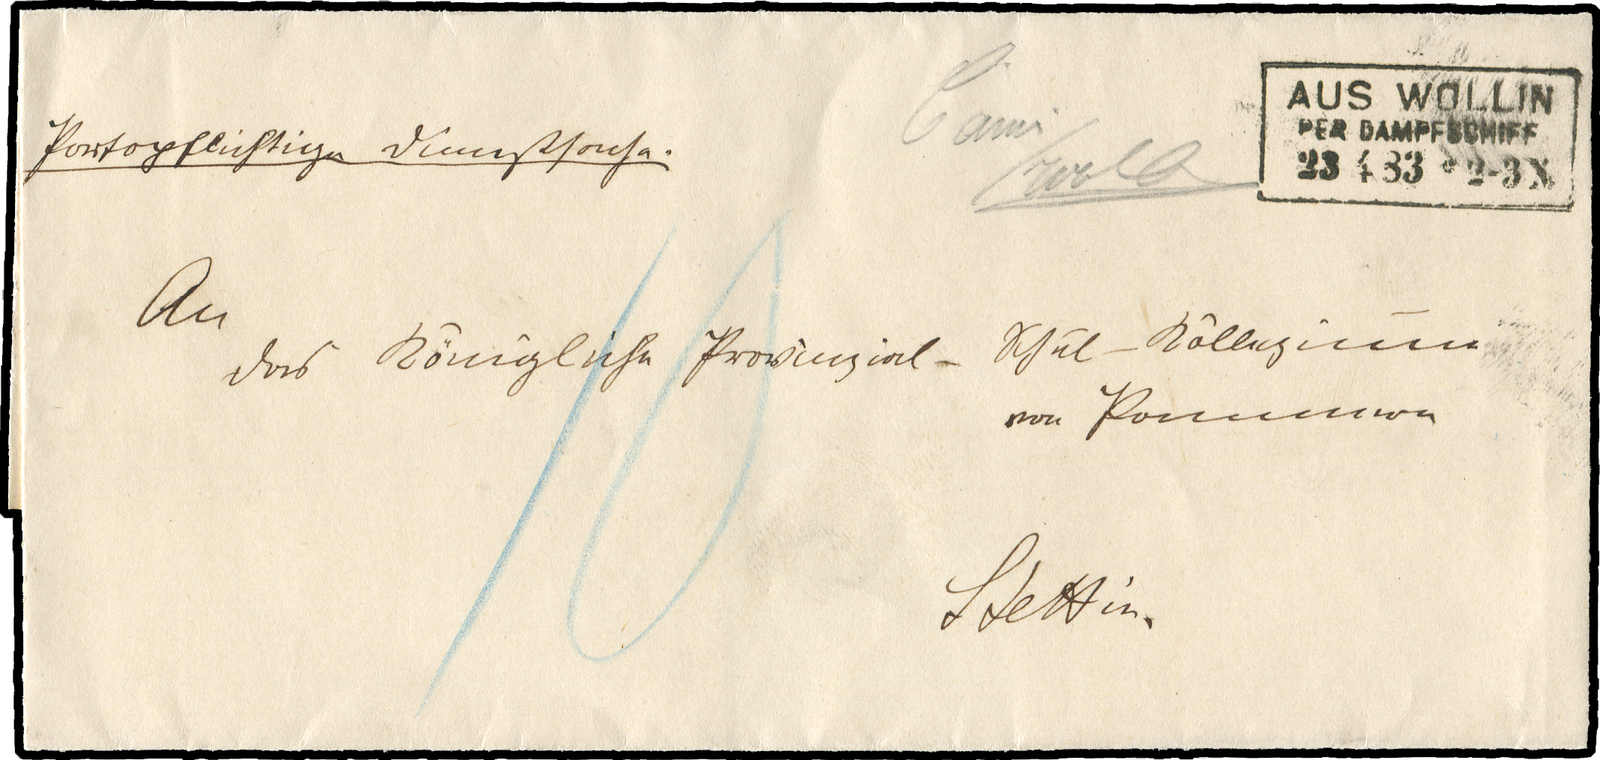 Portopflichtige Dienstsache.
AUS WOLLIN
PER DAMPFSCHIFF
23 4 83 * 2-3 N
An
das Königliche Provinzial-Schul-Kollegium
von Pommern
10
Stettin.